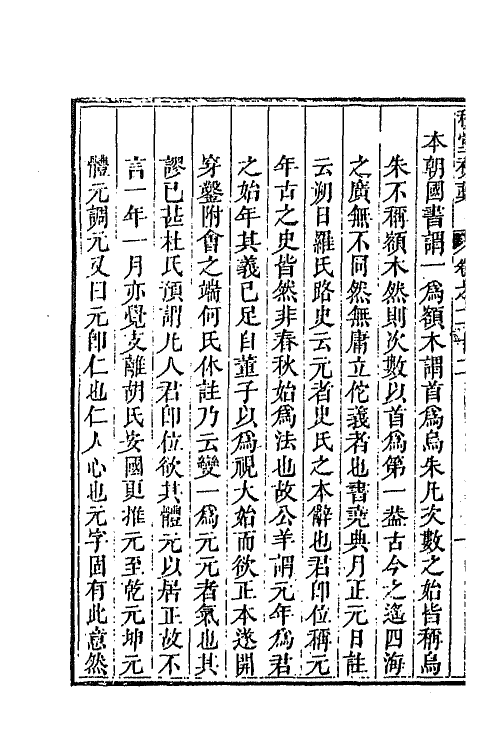 本朝國書謂一爲額木謂首爲烏朱凡次數之始皆稱烏
朱不稱額木然則次數以首爲第一葢古今之遙四海
之廣無不同然無庸立佗義者也書堯典月正元日註
云朔日羅氏路史云元者史氏之本辭也君卽位稱元
年古之史皆然非春秋始爲法也故公羊謂元年爲君
之始年其義已足自董子以爲視大始而欲正本遂開
穿鑿附會之端何氏休註乃云變一爲元元者氣也其
謬已甚杜氏預謂凡人君卽位欲其體元以居正故不
言一年一月亦覺支離胡氏安國更推元至乾元坤元
體元調元又曰元卽仁也仁人心也元字固有此意然